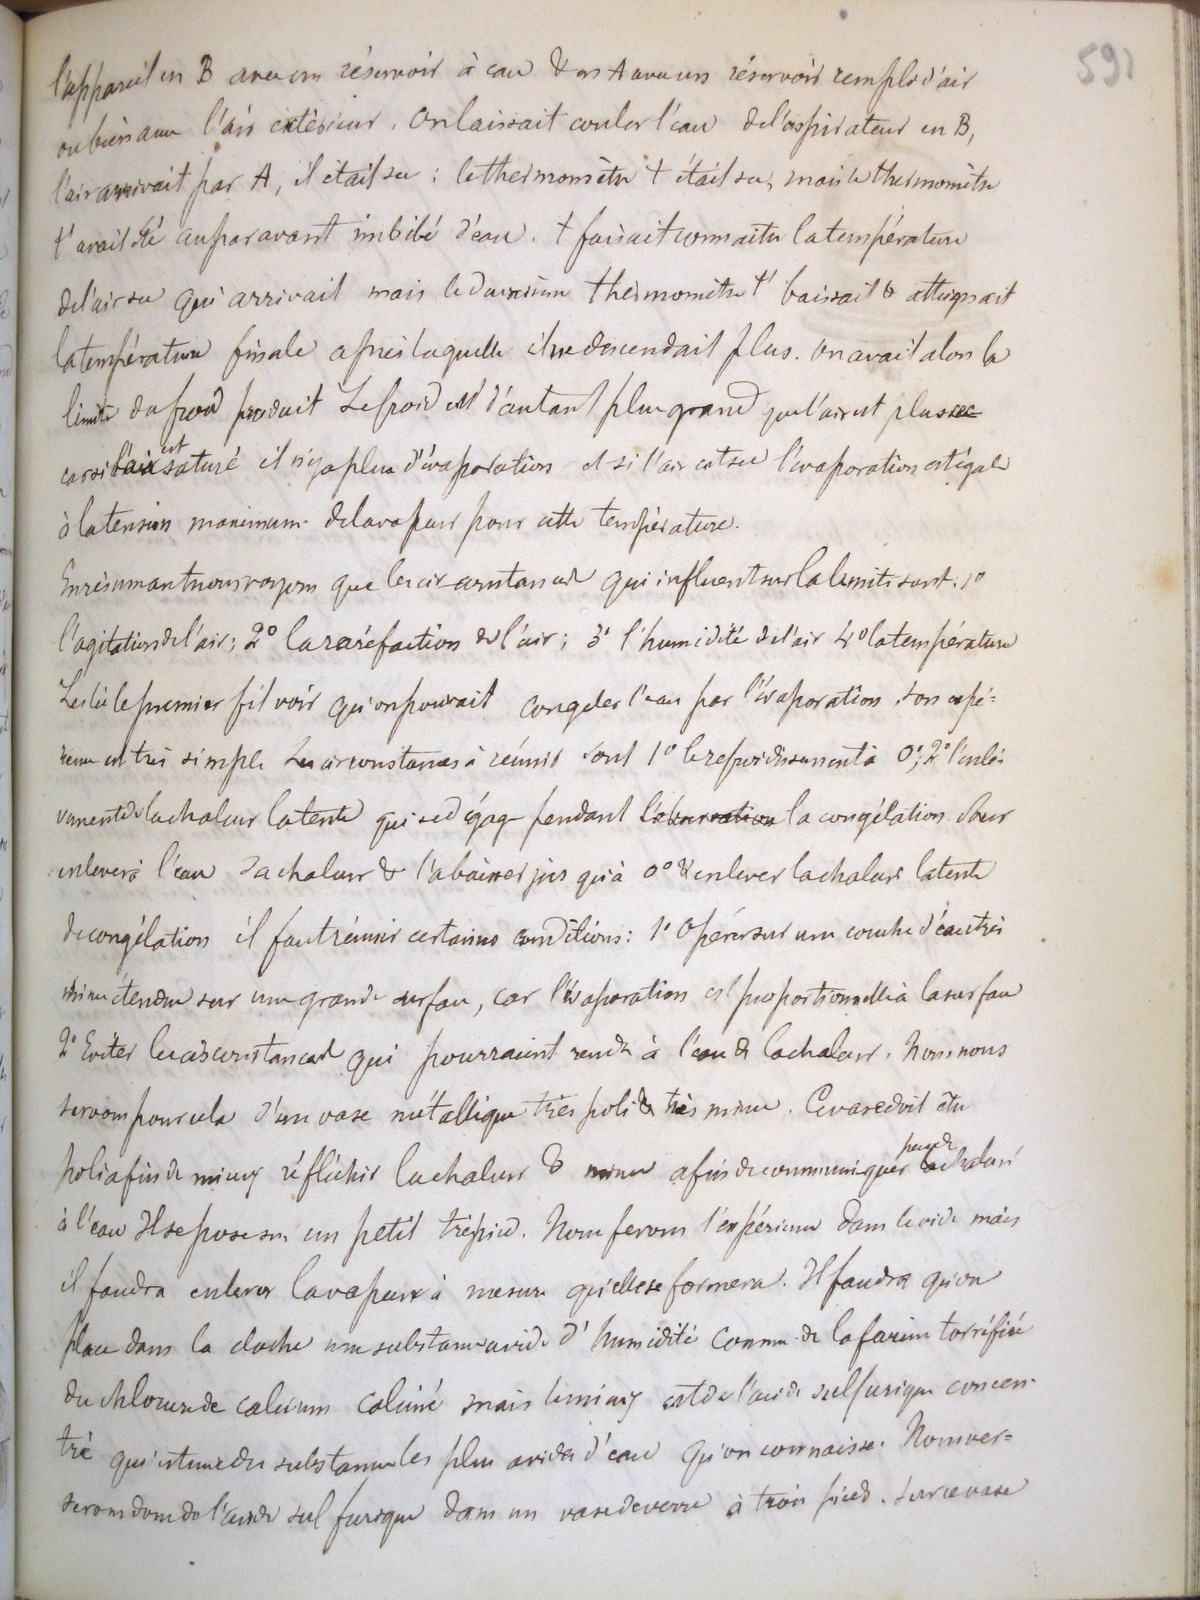 591
l'appareil en B avec un réservoir à eau & en A avec un réservoir rempli d'air
ou bien avec l'air extérieur. On laissait couler l'eau de l'aspirateur en B,
l'air arrivait par A, il était sec : le thermomètre t était sec, mais le thermomètre
t' avait été auparavant imbibé d'eau. t faisait connaitre la température
de l'air sec qui arrivait mais le deuxième thermomètre t' baissait & atteignait
la température finale après laquelle il ne descendait plus. On avait alors la
limite du froid produit Le froid est d'autant plus grand que l'air est plus sec
car si l'air est saturé il n'y a plus d'évaporation et si l'air est sec l'évaporation est égale
à la tension maximum de la vapeur pour cette température.
En résumant nous voyons que les circonstances qui influent sur la limite sont : 1°
l'agitation de l'air ; 2° la raréfaction de l'air ; 3° l'humidité de l'air 4° la température
Leslie le premier fit voir qu'on pouvait congeler l'eau par l'évaporation. Son expé=
rience est très simple Les circonstances à réunir sont 1° le refroidissement à 0° ; 2° l'enlè
vement de la chaleur latente qui se dégage pendant l'observation la congélation. Pour
enlever à l'eau sa chaleur & l'abaisser jusqu'à 0° & enlever la chaleur latente
de congélation il faut réunir certaines conditions : 1° Opérer sur une couche d'eau très
mince étendue sur une grande surface, car l'évaporation est proportionnelle à la surface
2° Eviter les circonstances qui pourraient rendre à l'eau de la chaleur. Nous nous
servons pour cela d'un vase métallique très poli & très mince. Ce vase doit être
poli afin de mieux réfléchir la chaleur & mince afin de communiquer peu de chaleur
à l'eau Il se pose sur un petit trépied. Nous ferons l'expérience dans le vide mais
il faudra enlever la vapeur à mesure qu'elle se formera. Il faudra qu'on
place dans la cloche une substance avide d'humidité comme de la farine torréfiée
du chlorure de calcium calciné mais le mieux est de l'acide sulfurique concen-
tré qui est une des substances les plus avides d'eau qu'on connaisse. Nous ver=
serons donc de l'acide sulfurique dans un vase de verre à trois pieds. Sur ce vase